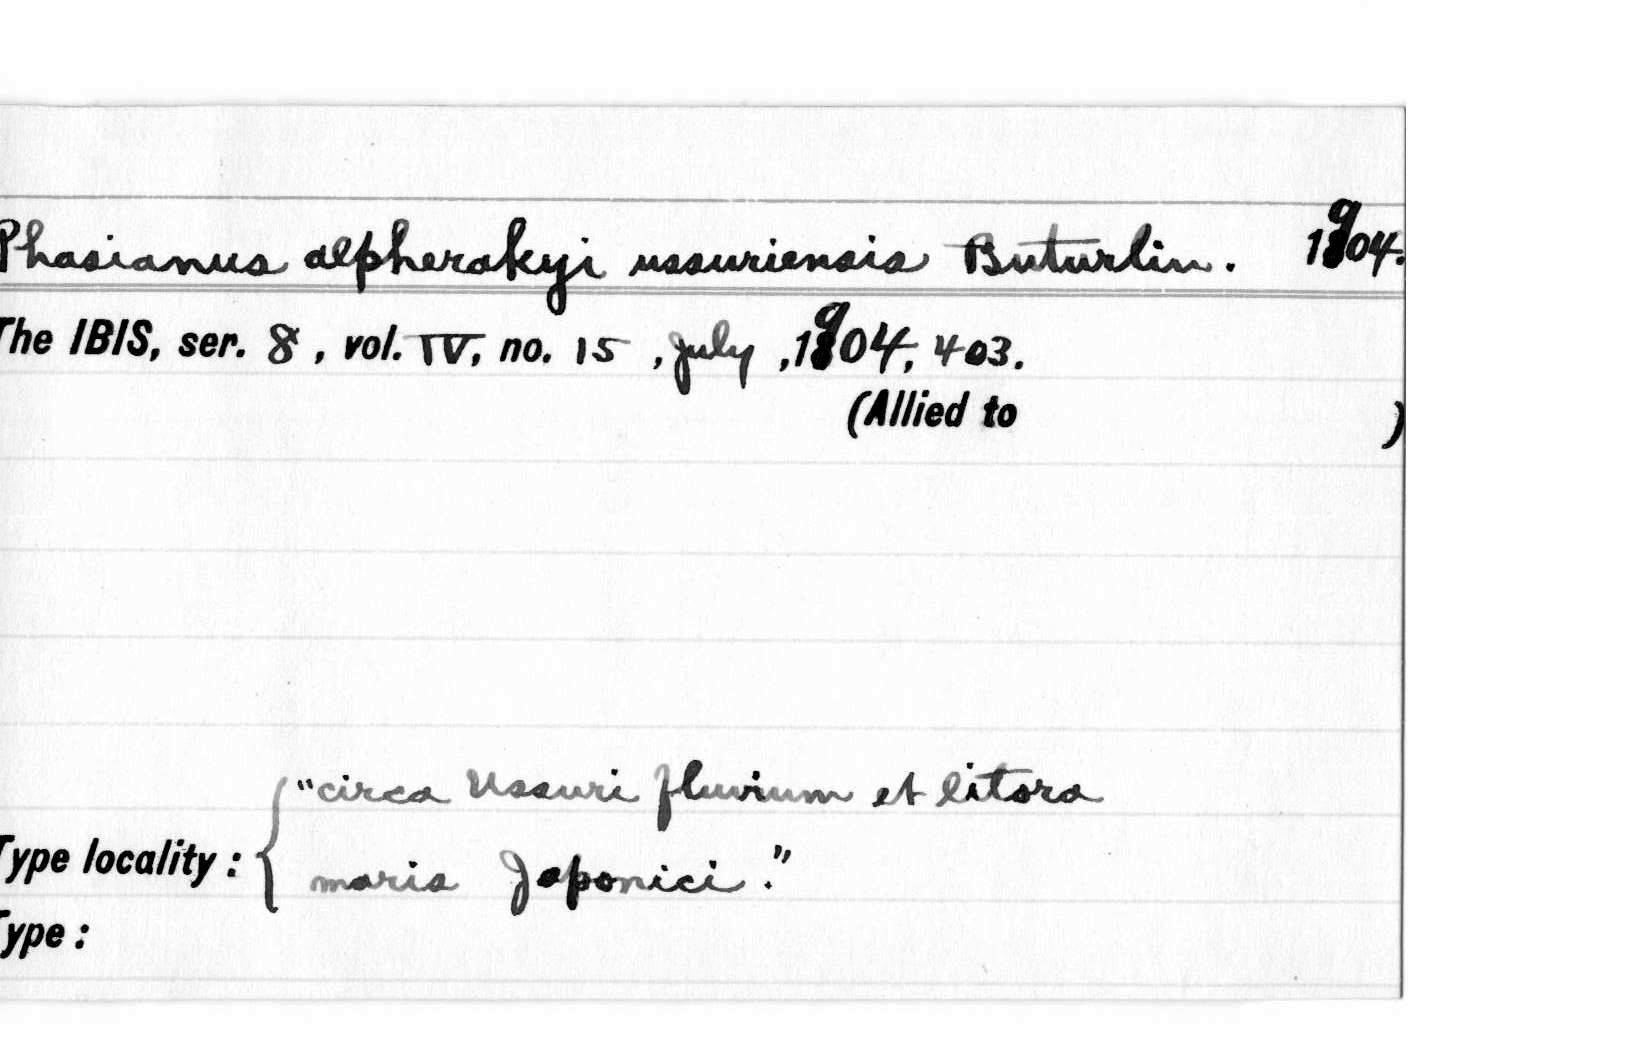 Phasianus alpherakyi ussuriensis Buturlin. 1904.
The IBIS, ser. 8, vol. IV, no. 15, July, 1904, 403.
(Allied to )
"circa Ussuri fluvium et litora
Type locality: { maris Japonici."
Type: